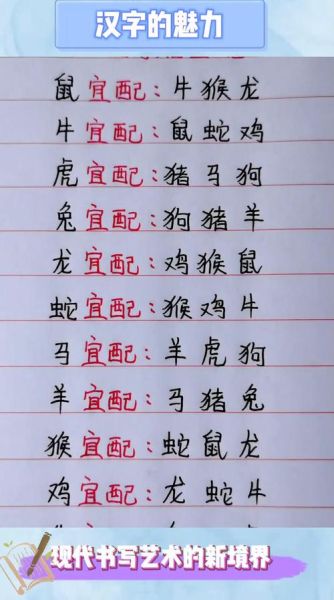 汉字的魅力
鼠宜配：牛猴龙
牛宜配：鼠蛇鸡
虎宜配：猪马狗
兔宜配：狗猪羊
龙宜配：鸡猴鼠
蛇宜配：猴鸡牛
马宜配：羊虎狗
羊宜配：马猪兔
猴宜配：蛇鼠龙
鸡宜配：龙蛇牛
现代书写艺术的新境界